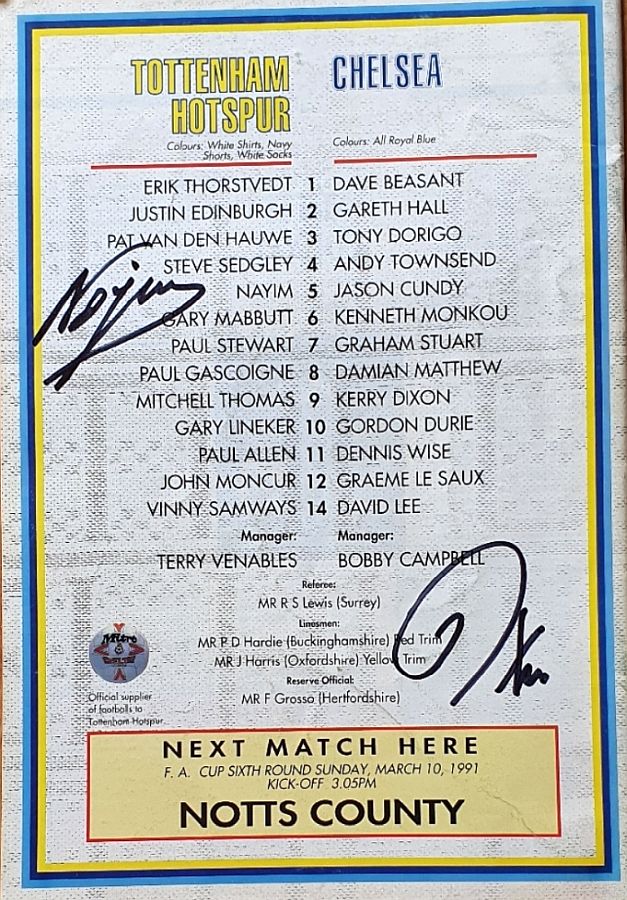 TOTTENHAM HOTSPUR
Colours: White Shirts, Navy Shorts, White Socks
CHELSEA
Colours: All Royal Blue
ERIK THORSTVEDT 1 DAVE BEASANT
JUSTIN EDINBURGH 2 GARETH HALL
PAT VAN DEN HAUWE 3 TONY DORIGO
STEVE SEDGLEY 4 ANDY TOWNSEND
NAYIM 5 JASON CUNDY
GARY MABBUTT 6 KENNETH MONKOU
PAUL STEWART 7 GRAHAM STUART
PAUL GASCOIGNE 8 DAMIAN MATTHEW
MITCHELL THOMAS 9 KERRY DIXON
GARY LINEKER 10 GORDON DURIE
PAUL ALLEN 11 DENNIS WISE
JOHN MONCUR 12 GRAEME LE SAUX
VINNY SAMWAYS 14 DAVID LEE
Manager: Manager:
TERRY VENABLES BOBBY CAMPBELL
Referee:
MR R S Lewis (Surrey)
Linesmen:
MR P D Hardie (Buckinghamshire) Red Trim
MR J Harris (Oxfordshire) Yellow Trim
Reserve Official:
MR F Grosso (Hertfordshire)
Mitre
Official supplier
of footballs to
Tottenham Hotspur
NEXT MATCH HERE
F. A. CUP SIXTH ROUND SUNDAY, MARCH 10, 1991
KICK-OFF 3.05PM
NOTTS COUNTY